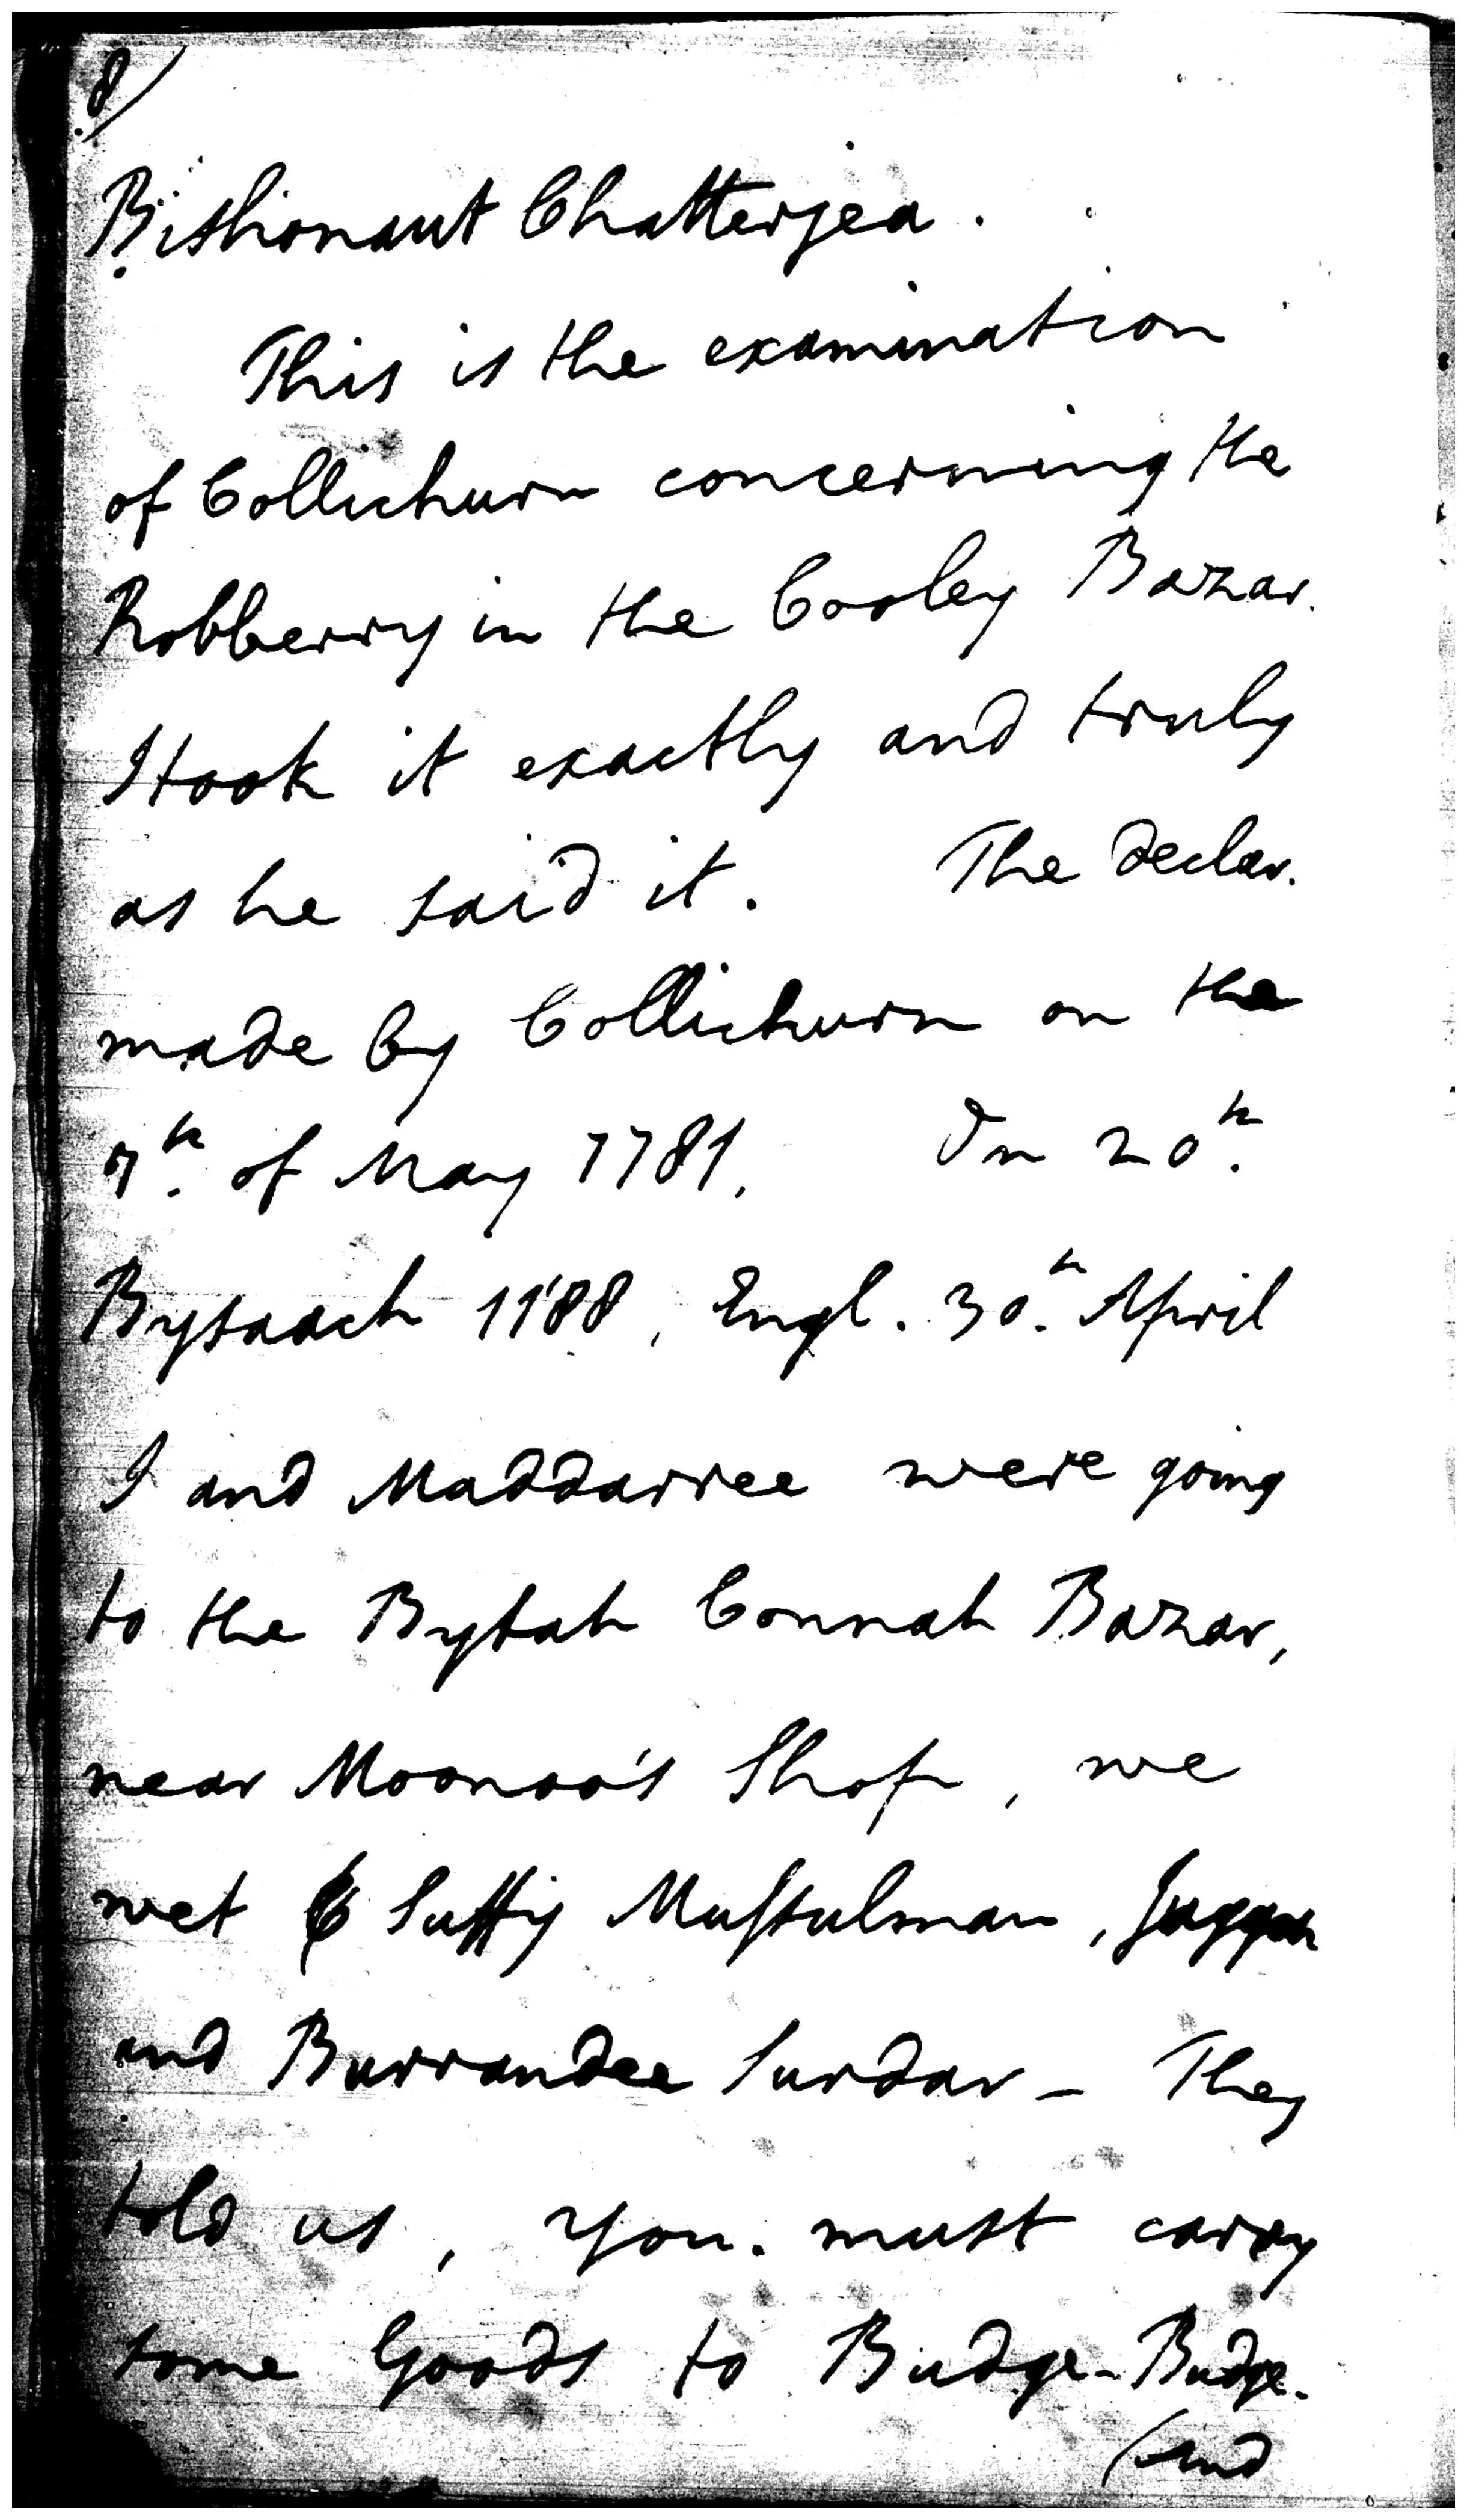 8)
Bishonaut Chatterjea.
This is the examination
of Collichurn concerning the
Robberry in the Cooley Bazar.
I took it exactly and truly
as he said it. The Declar.
made by Collichurn on the
7th. of May 1781. On 20th.
Bysaach 1188, Engl. 30.th April
I and Maddarree were going
to the Bytah Connah Bazar,
near Moonoo's Shop, we
met Suffy Mussulman, Juggoo
and Burrandee Surdar - They
told us, you must carry
some Goods to Budge-Budge.
(and